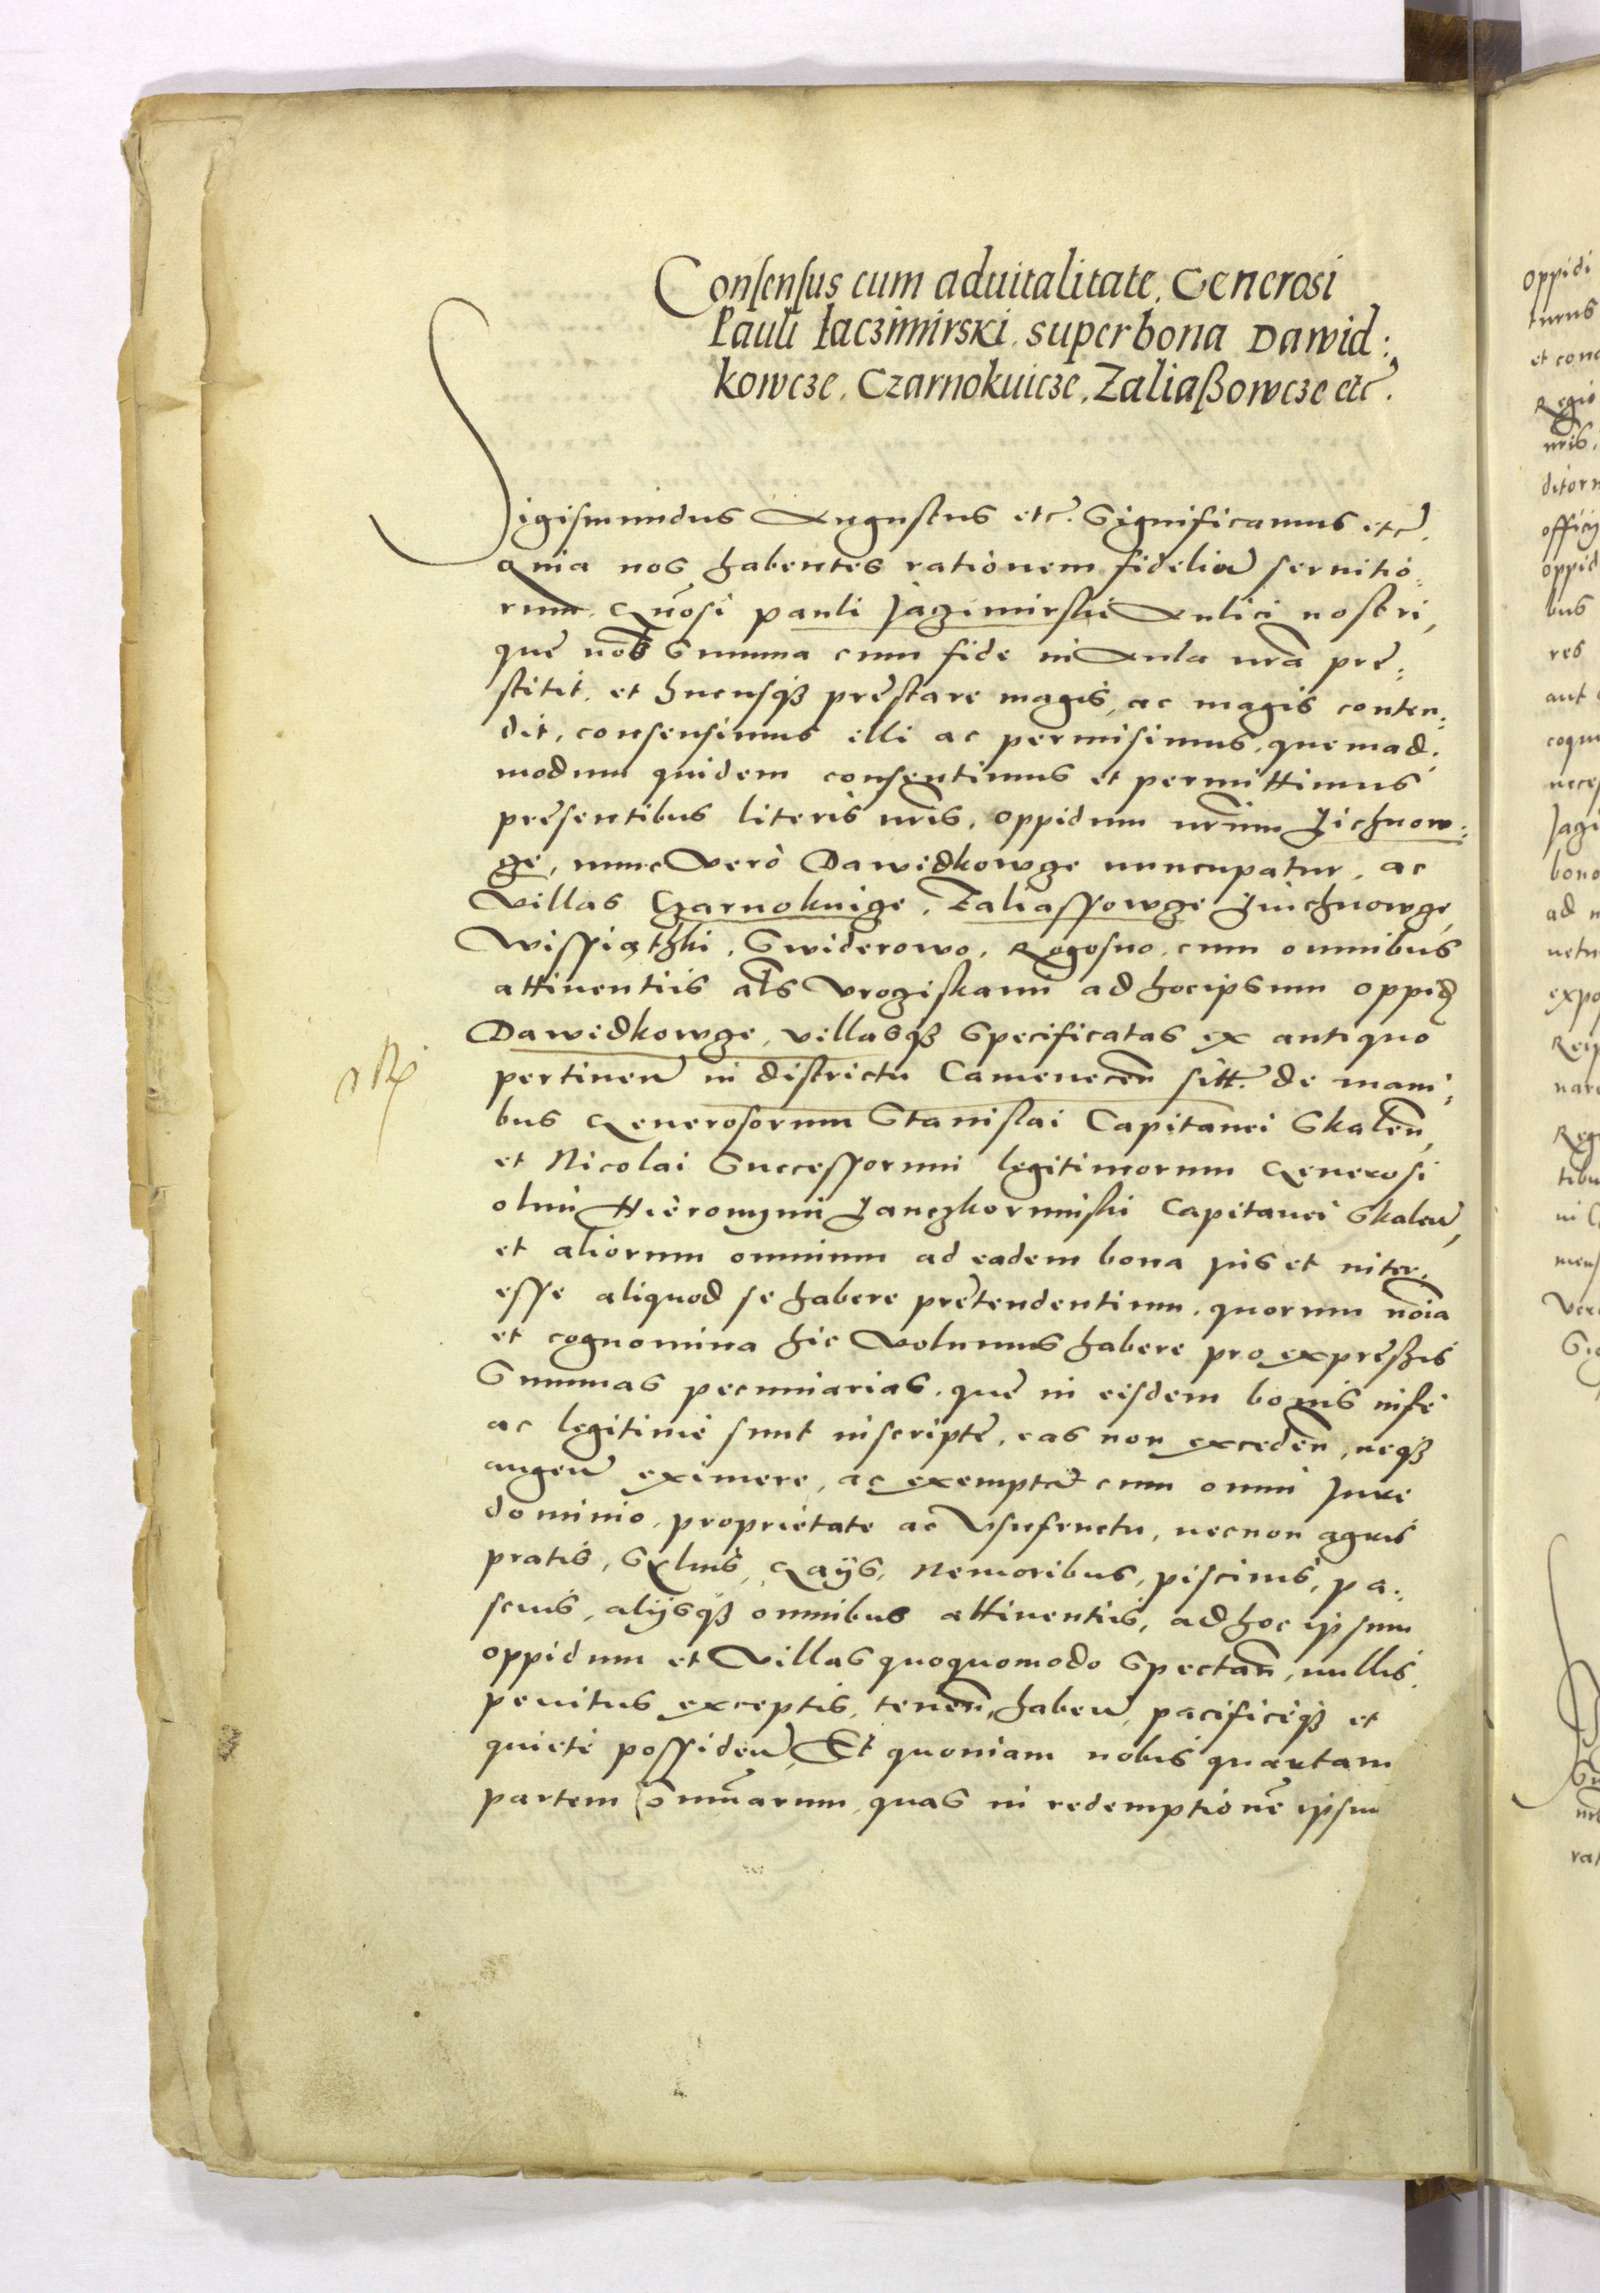 Consensus cum aduitalitate, Generosi
Pauli Iaczimirski super bona Dawid:
kowcze, Czarnokuicze, Zaliaßowcze etc.
Sigismundus Augustus etc. Significamus etc.
Quia nos habentes rationem fideliũ seruitio:
rum Gñosi pauli Jaczimirski Aulici nostri,
que nob Summa cum fide in Aula nrã pre:
stitit, et hucusqȝ prestare magis, ac magis conten:
dit, consensimus illi ac permisimus, quemad:
modum quidem consentimus et permittimus
presentibus literis nris, oppidum nrũm
nunc Verò Dawidkowcze nuncupatur, ac
Villas Czarnokuicze, Zaliassowcze
Swiderowo, Rogosno, cum omnibus
attinentiis als ad hoc ipsum oppid
Dawidkowcze, villasqȝ Specificatas ex antiquo
pertineñ in districtu Camenecen̄ sitt. de mani:
bus Generosorum Stanislai Capitanei Skaleñ,
et Nicolai Successorum legitimorum Generosi
olim Hieronymi Lanczkorunski Capitanei Skaleñ,
et aliorum omnium ad eadem bona ius et inter:
esse aliquod se habere pretendentium, quorum nõia
et cognomina hic Volumus habere pro expressis
Summas pecuniarias, que in eisdem bonis
ac legitime sunt inscripte, eas non excedeñ, neqȝ
augeñ eximere, ac cum omni Jure
dominio, proprietate ac Vsufructu, necnon agris
pratis, Syluis, Gays, Nemoribus, piscinis, pa:
scuis, alijsqȝ omnibus attinentiis, ad hoc ipsum
oppidum et Villas quoquomodo Spectañ, nullis
penitus exceptis, teneñ, habeñ, pacificeqȝ et
quiete possideñ, Et quoniam nobis quartam
partem Summarum, quas in redemptione
oppidi
et
Regio
nris,
officij
oppid
bus
res
aut
Jagi
bono
ad
expo
Reg